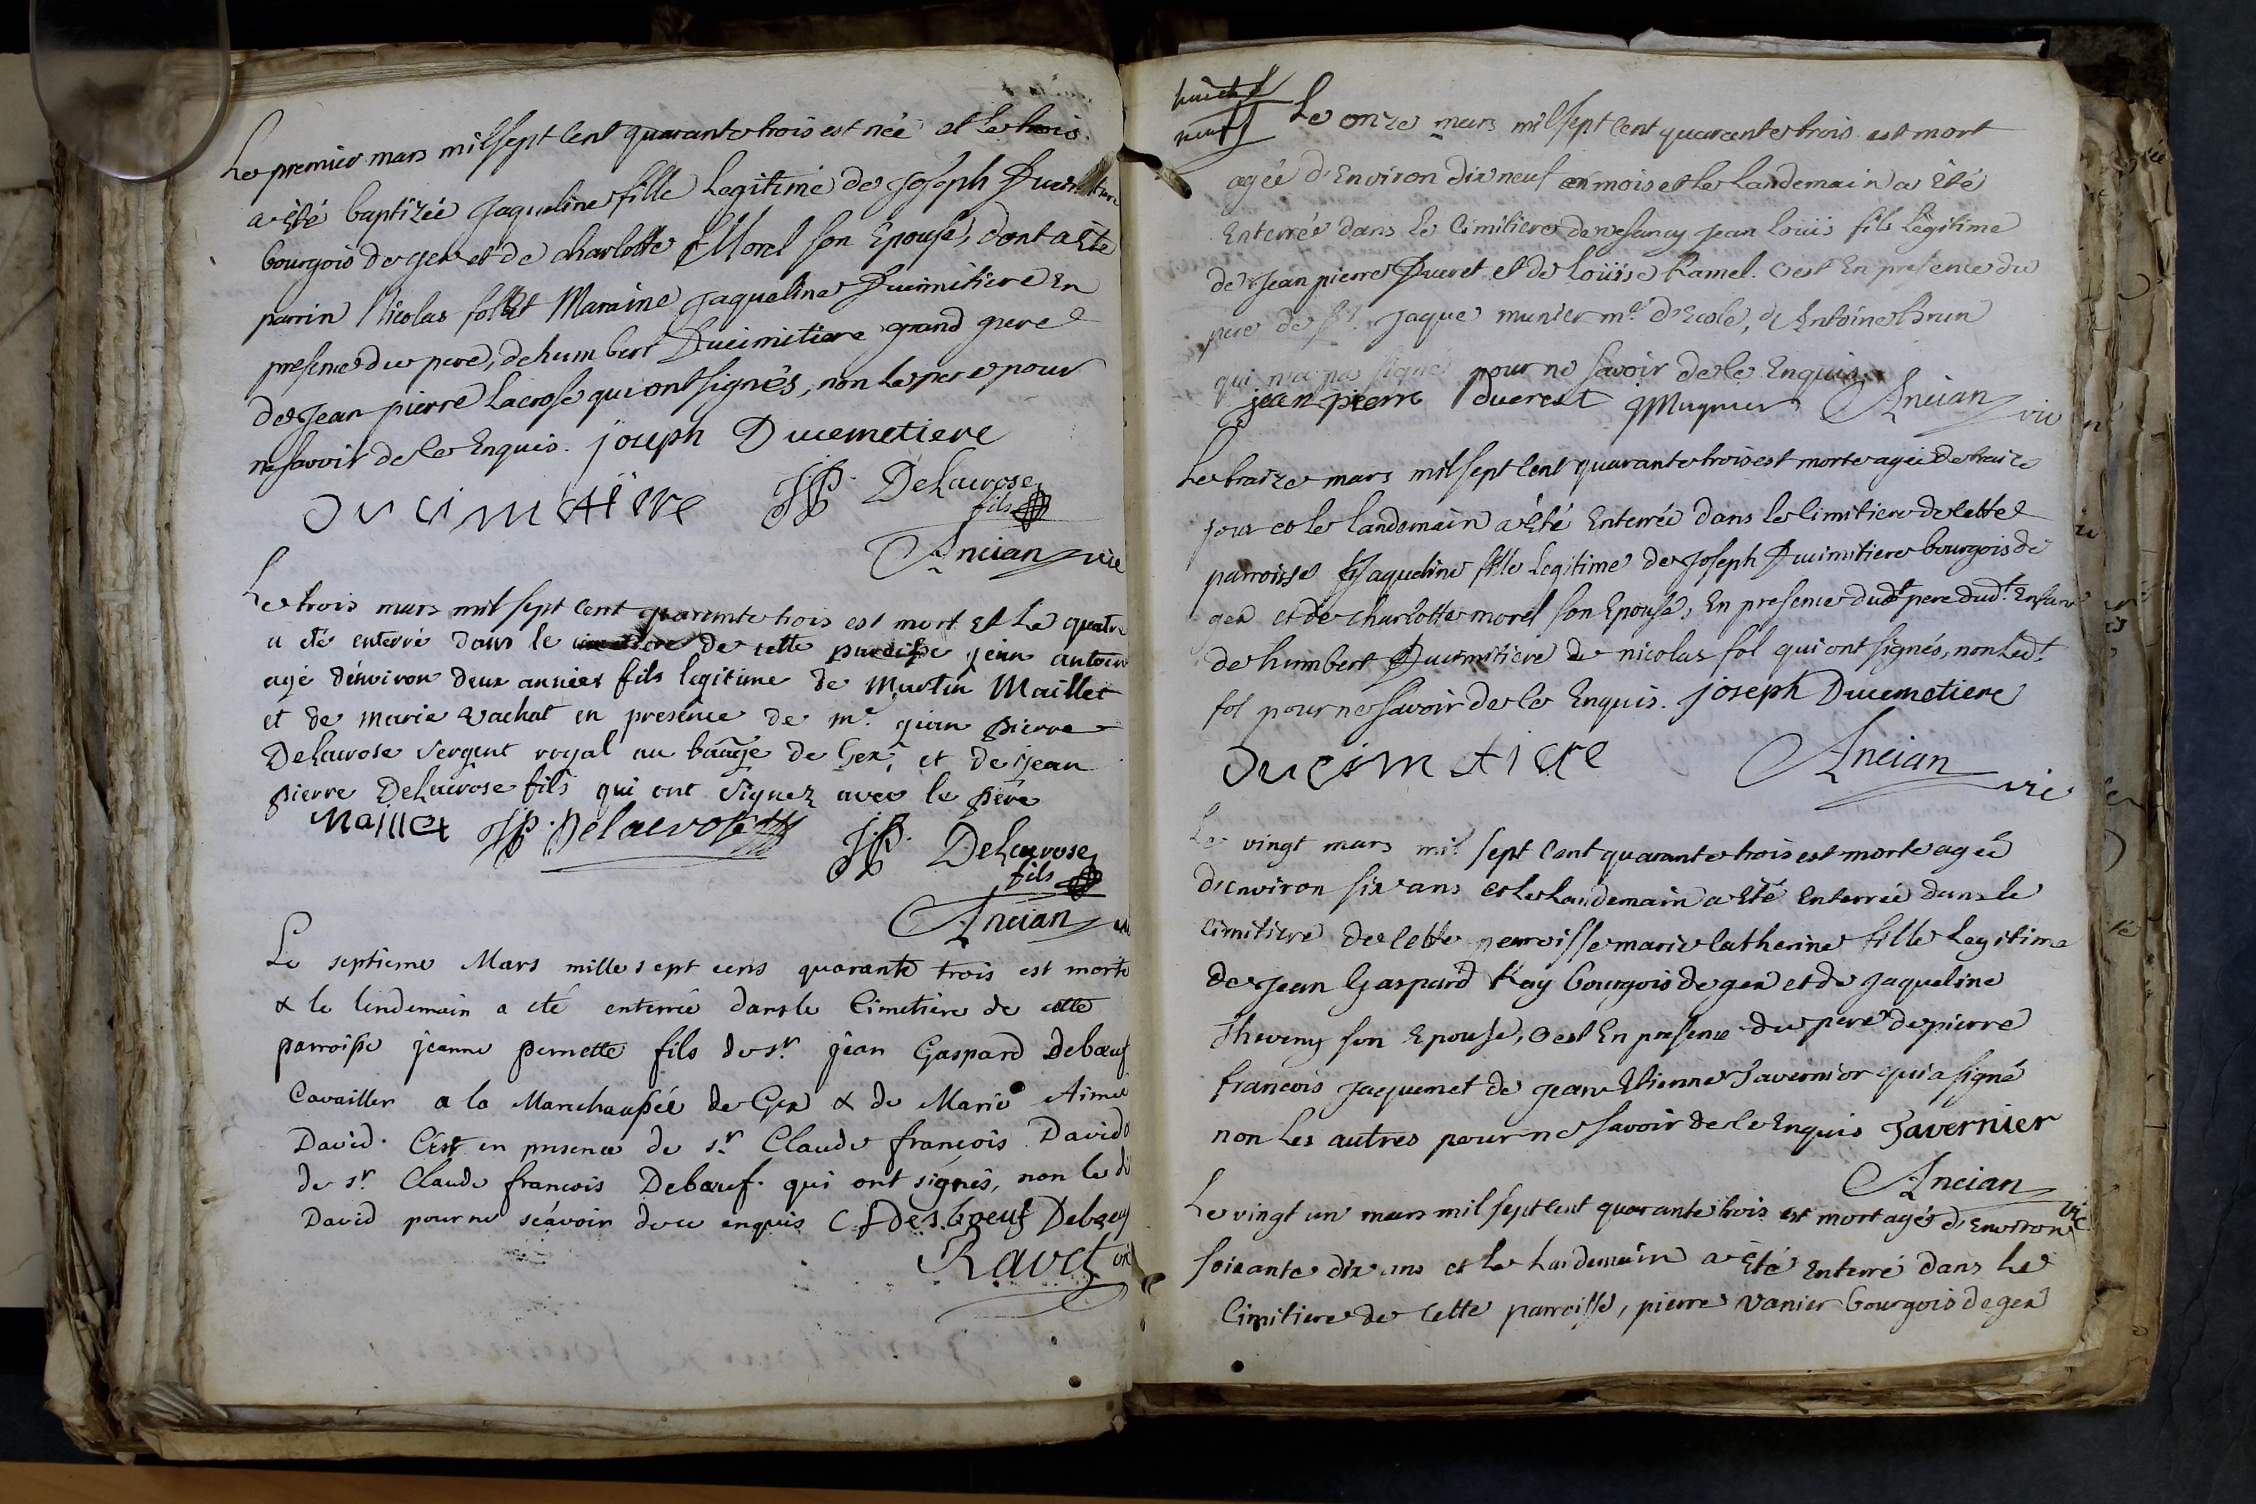 Le premier mars mil sept Cent quarante trois est née et le trois
a êté baptizée Jaqueline fille Legitime de Joseph Ducimitiere
bourgois de gex et de charlotte Morel son Epouse, dont a Eté
parrin Nicolas follet Maraine Jaqueline Ducimitiere En
presence du pere, de humbert Ducimitiere grand pere
de Jean pierre Lacrose qui ont signés, non le pere pour
ne savoir de ce Enquis. joseph Ducemetiere
ducimetiere JP. DeLacrose
fils
Ancian vic
Le trois mars mil sept Cent quarante trois est mort et Le quatre
a eté enterré dans le cimetiere de cette paroisse jean antoine
agé d'environ deux années fils legitime de Martin Maillet
et de marie Vachat en presence de mr. jean pierre
DeLacrose sergent royal au baage de Gex, et de jean
pierre DeLacrose fils qui ont signez avec le pere
Maillet JP. Delacrose JP. DeLacrose
fils
Ancian vic
Le septieme Mars mille sept cens quarante trois est morte
& le lendemain a eté enterrée dans le Cimetiere de cette
parroisse jeanne pernette fils de sr. jean Gaspard Debœuf
Cavailler a la Marechaussée de Gex & de Marie Aimée
David. C'est en presence de sr. Claude françois David
de sr. Claude françois Debœuf. qui ont signés, non le dt
David pour ne sçavoir de ce enquis C. f Desboeuf Debœuf
Ravet vic
huict
neuf
Le onze mars mil sept Cent quarante trois est mort
agée d'Environ dix neuf mois et le Landemain a êté
Enterré dans le Cimitiere de vesancy Jean Loüis fils Légitime
de Jean pierre Ducret et de Loüise hamel. C'est En presence du
pere de sr. Jaque munier me. d'Ecole, & Antoine brun
qui n'a pas signé pour ne savoir de ce Enquis.
jean pierre ducrest JMugnier Ancian vic
Le traize mars mil sept Cent quarante trois est morte agée de traize
jour et le landemain a êté Enterrée dans le Cimitiere de Cette
parroisse Jaqueline fille Legitime de Joseph Ducimitiere bourgois de
gex et de Charlotte morel son Epouse, En presence dudt pere dudt. Enfant
de humbert Ducimitiere de nicolas fol qui ont signés, non Ledt.
fol pour ne savoir de ce Enquis. joseph Ducemetiere
ducimetiere Ancian
vic
Le vingt mars mil sept Cent quarante trois est morte agée
d'Environ six ans et le Landemain a êté Enterrée dans le
Cimitiere de Cette parroisse marie Catherine fille Legitime
de Jean Gaspard Kay bourgois de gex et de Jaqueline
Theveny son Epouse, C'est En presence du pere de pierre
francois Jaquemet de Jean Etienne Tavernier qui a signé
non Les autres pour ne savoir de ce Enquis Tavernier
Ancian vic
Le vingt un mars mil sept Cent quarante trois est mort agés d'Environ
soixante dix ans et le Landemain a êté Enterré dans le
Cimitiere de Cette parroisse, pierre Vanier bourgois de gex